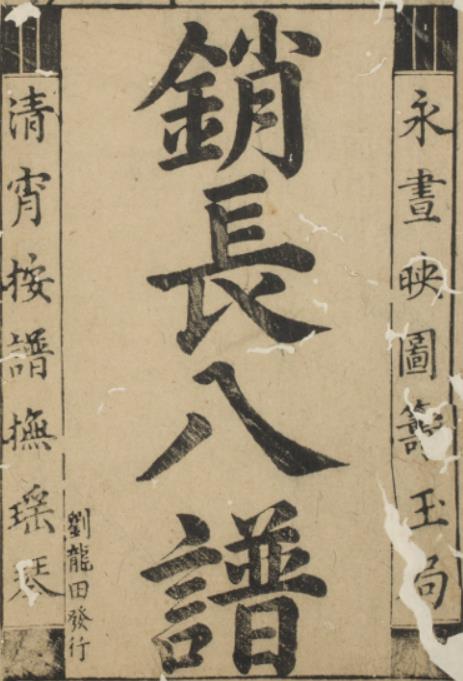 永晝映圖玉局
銷長八譜
劉龍田發行
清宵按譜撫瑶琴